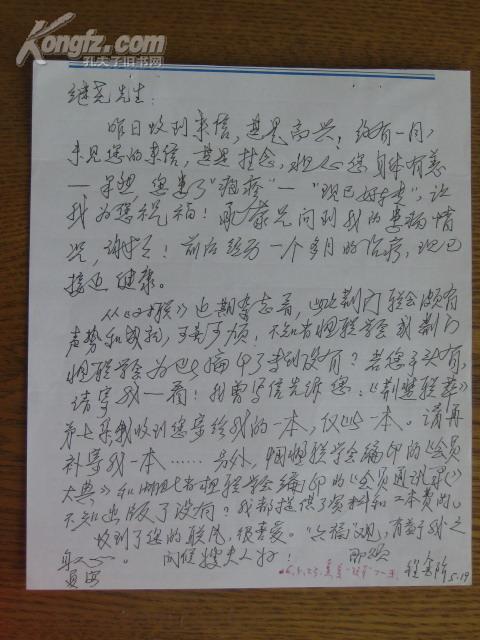 Kongfz.com
孔夫子旧书网
继尧先生:
昨日收到来信,甚是高兴!约有一月,
未见您的来信,甚是挂念,担心您身体有恙
——果然,您患了"疱疹"——"现已好转",让
我为您祝福!承蒙兄问到我的患病情
况,谢谢!前后经历一个多月的治疗,现已
接近健康。
从《对联》近期杂志看,此次荆门联会颇有
声势和威, 可喜可贺!不知省楹联学会或荆门
楹联学会为此编印了专刊没有?若您手头有,
请寄我一看!我曾写信告诉您:《荆楚联萃》
第七集我收到您寄给我的一本,仅此一本。请再
补寄我一本……另外,中国楹联学会编印的《会员
大典》和湖北省楹联学会编印的《会员通讯录》
不知出版了没有?我都提供了资料和工本费的。
收到了您的联作,很喜爱。"六福"观,有益于我之
身心。 问候嫂夫人好! 即颂
夏安
5.19